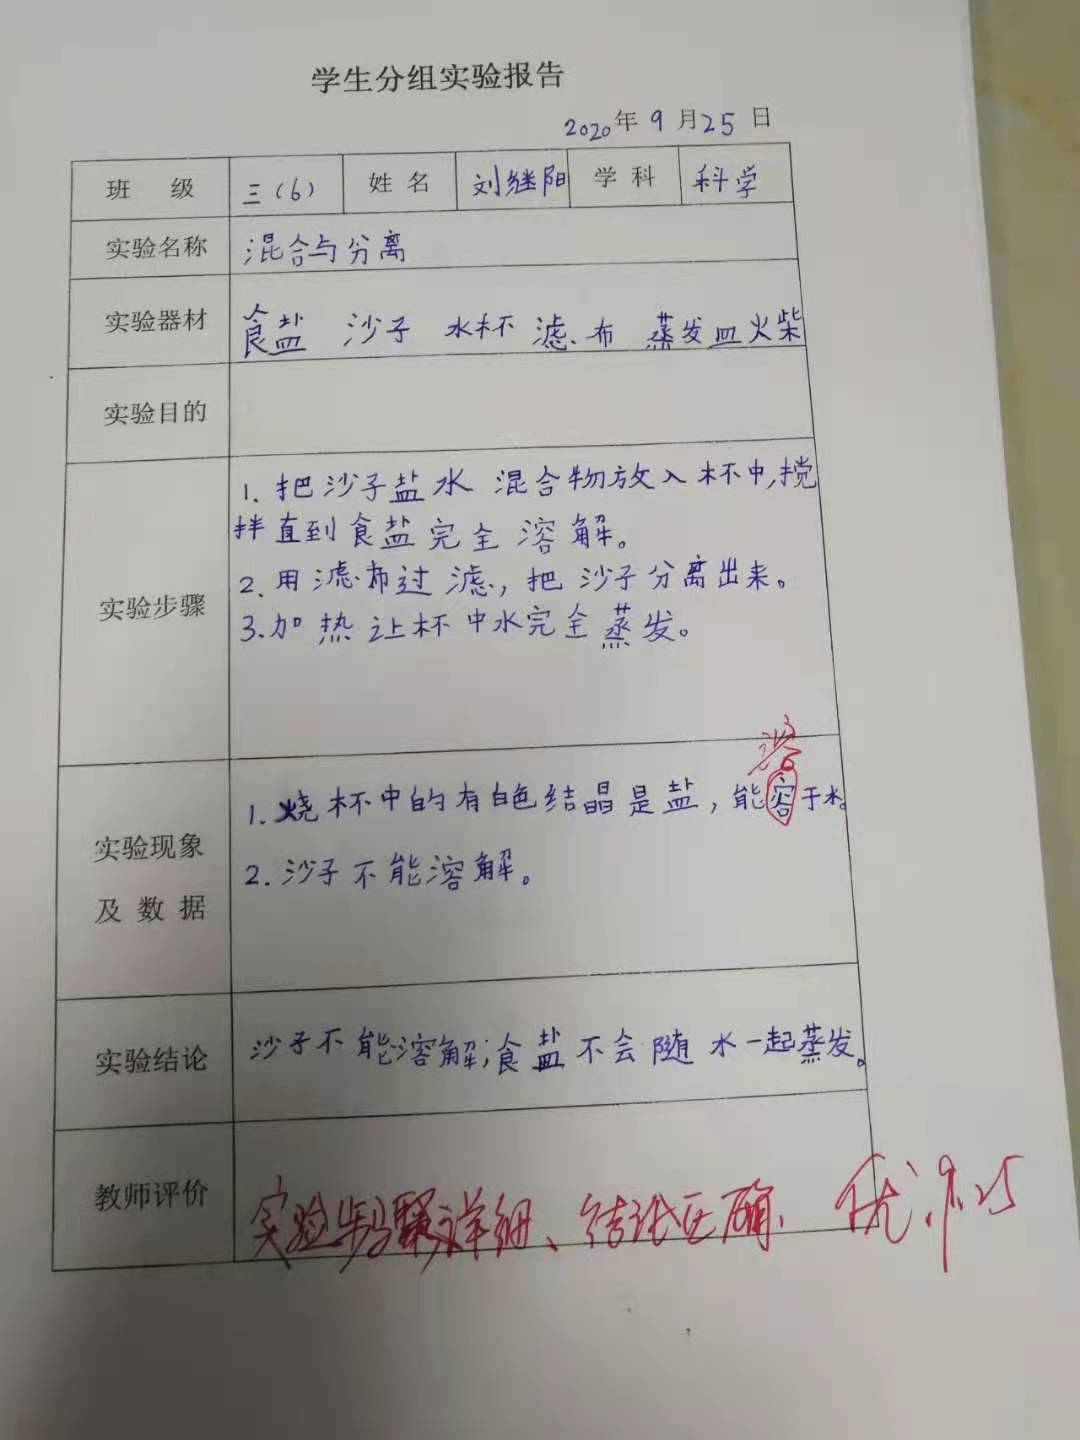 学生分组实验报告
2020年9月25日
班 级 三(6) 姓名 刘继阳 学科 科学
实验名称 混合与分离
实验器材 食盐 沙子 水杯 滤布 蒸发皿火柴
实验目的
实验步骤
1. 把沙子盐水 混合物放入杯中,搅
拌直到食盐完全溶解。
2. 用滤布过滤,把沙子分离出来。
3. 加热让杯中水完全蒸发。
溶
实验现象
及数据
1. 烧杯中的有白色结晶是盐,能容于水。
2. 沙子不能溶解。
实验结论 沙子不能溶解;食盐不会随水一起蒸发。
教师评价 实验步骤详细、结论正确. 优. 9.25